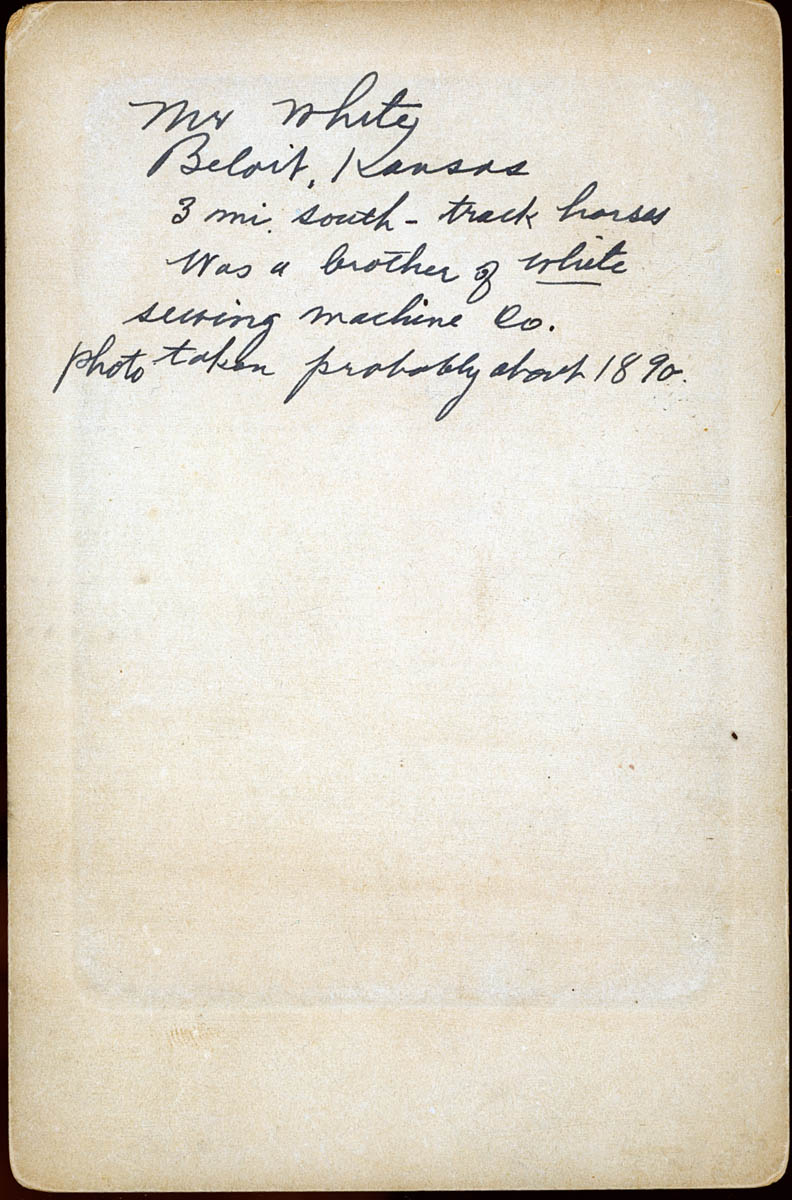 Mr White
Beloit, Kansas
3 mi. south - track horses
Was a brother of White
sewing machine Co.
photo taken probably about 1890.